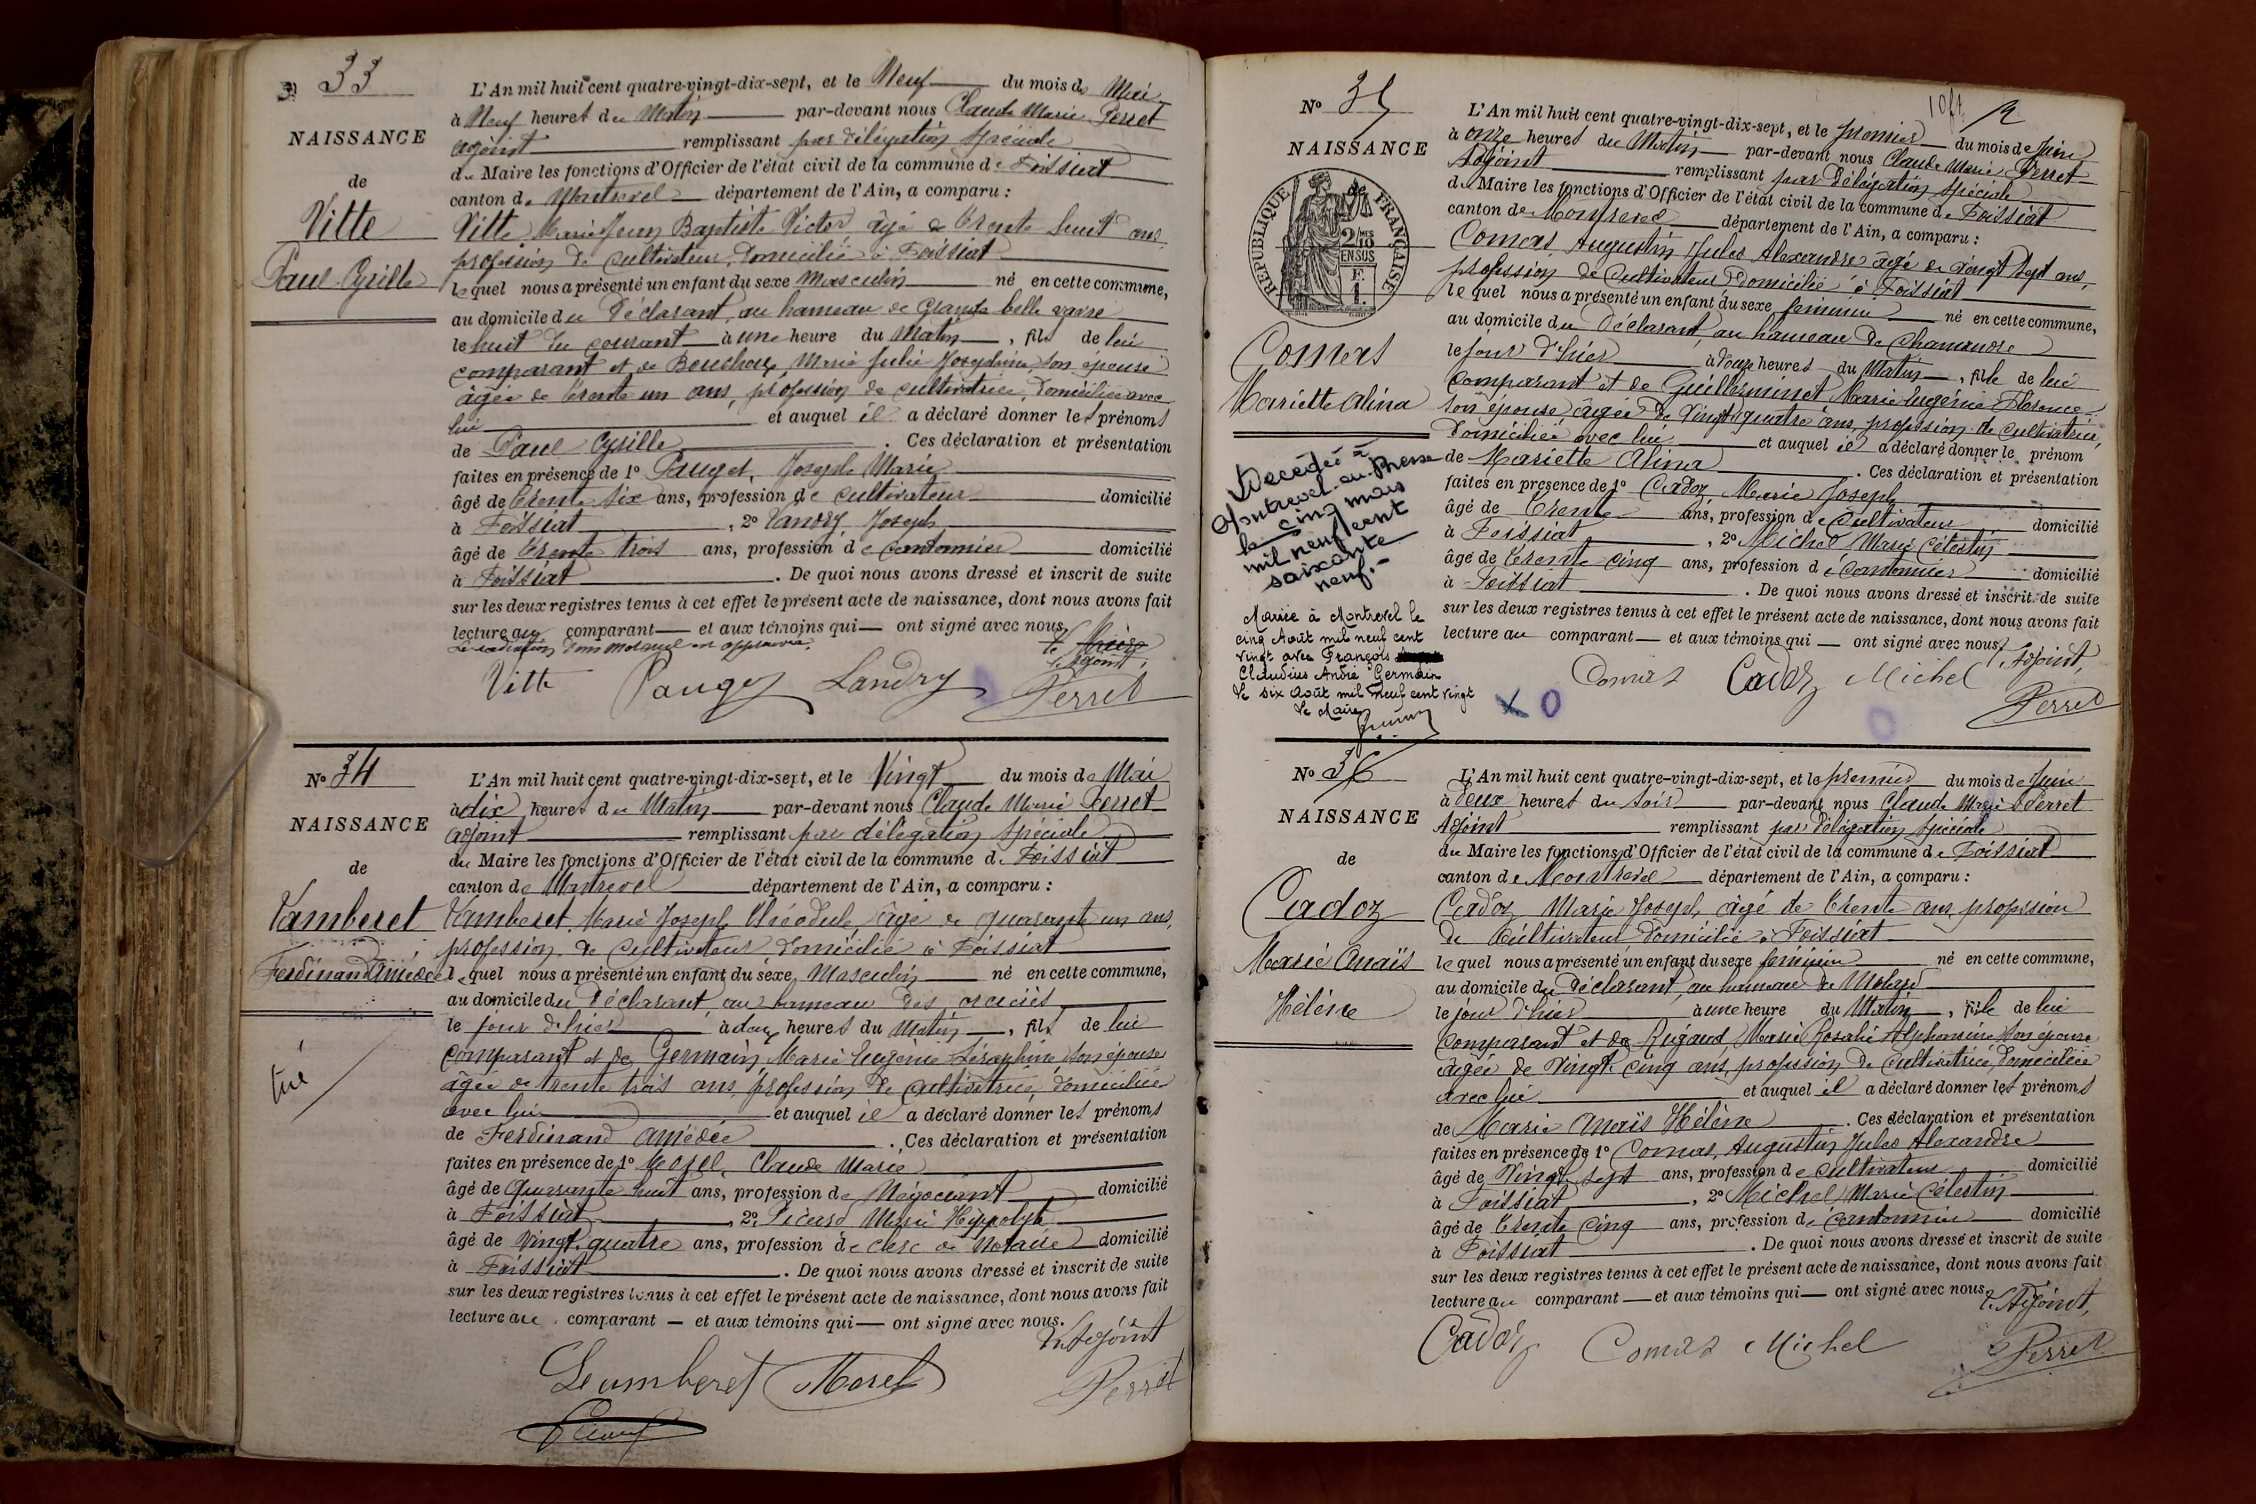 N° 33
NAISSANCE
de
Vitte
Paul Cyrille
L'An mil huit cent quatre-vingt-dix-sept, et le Neuf du mois de Mai
à Neuf heures du Matin par-devant nous Claude Marie Perret
adjoint remplissant par délégation spéciale
du Maire les fonctions d'Officier de l'état civil de la commune de Foissiat
canton de Montrevel département de l'Ain, a comparu :
Vitte Marie Jean Baptiste Victor âgé de trente huit ans,
profession de cultivateur, domicilié à Foissiat
lequel nous a présenté un enfant du sexe Masculin né en cette commune,
au domicile du déclarant, au hameau de Grande belle vavre
le huit du courant à une heure du Matin, fils de lui
comparant et de Bouchoux, Marie Julie Joséphine, son épouse
âgée de trente un ans, profession de cultivatrice, domiciliée avec
lui et auquel il a déclaré donner les prénoms
de Paul Cyrille. Ces déclaration et présentation
faites en présence de 1° Pauget, Joseph Marie
âgé de trente six ans, profession de cultivateur domicilié
à Foissiat, 2° Landry Joseph
âgé de trente trois ans, profession de cantonnier domicilié
à Foissiat. De quoi nous avons dressé et inscrit de suite
sur les deux registres tenus à cet effet le présent acte de naissance, dont nous avons fait
lecture au comparant et aux témoins qui ont signé avec nous.
le Maire
l'Adjoint,
Vitte Pauget Landry Perret
N° 34
NAISSANCE
de
Vamberet
Ferdinand Amédée
tué
L'An mil huit cent quatre-vingt-dix-sept, et le Vingt du mois de Mai
à dix heures du Matin par-devant nous Claude Marie Perret
adjoint remplissant par délégation spéciale
du Maire les fonctions d'Officier de l'état civil de la commune de Foissiat
canton de Montrevel département de l'Ain, a comparu :
Vamberet, Marie Joseph Théodule, âgé de quarante un ans,
profession de cultivateur domicilié à Foissiat
lequel nous a présenté un enfant du sexe Masculin né en cette commune,
au domicile du déclarant, au hameau des
le jour d'hier à deux heures du Matin, fils de lui
comparant et de Germain, Marie Eugénie Séraphine, son épouse
âgée de trente trois ans, profession de cultivatrice, domiciliée
avec lui et auquel il a déclaré donner les prénoms
de Ferdinand Amédée. Ces déclaration et présentation
faites en présence de 1° Morel, Claude Marie
âgé de Quarante huit ans, profession de Négociant domicilié
à Foissiat, 2° Picard Marie Hippolyte
âgé de Vingt quatre ans, profession de clerc de Notaire domicilié
à Foissiat. De quoi nous avons dressé et inscrit de suite
sur les deux registres tenus à cet effet le présent acte de naissance, dont nous avons fait
lecture au comparant et aux témoins qui ont signé avec nous.
L'Adjoint
Vamberet Morel Perret
N° 35
NAISSANCE
de
RÉPUBLIQUE FRANÇAISE
2/10MES
EN SUS
F.
1.
Comas
Mariette Alina
Décédée à
Montrevel-en-Bresse
le cinq mars
mil neuf cent
soixante
neuf.-
Mariée à Montrevel le
cinq Août mil neuf cent
vingt avec François
Claudius André Germain
Le six Août mil neuf cent vingt
Le Maire
L'An mil huit cent quatre-vingt-dix-sept, et le premier du mois de Juin
à onze heures du Matin par-devant nous Claude Marie Perret
Adjoint remplissant par délégation spéciale
du Maire les fonctions d'Officier de l'état civil de la commune de Foissiat
canton de Montrevel département de l'Ain, a comparu :
Comas, Augustin Jules Alexandre âgé de vingt sept ans,
profession de cultivateur domicilié à Foissiat
lequel nous a présenté un enfant du sexe féminin né en cette commune,
au domicile du déclarant, au hameau de Chamandre
le jour d'hier à deux heures du Matin, fille de lui
comparant et de Guillerminet Marie Eugénie Florence
son épouse âgée de Vingt quatre ans, profession de cultivatrice,
domiciliée avec lui et auquel il a déclaré donner le prénom
de Mariette Alina. Ces déclaration et présentation
faites en présence de 1° Cadoz, Marie Joseph
âgé de trente ans, profession de Cultivateur domicilié
à Foissiat, 2° Michel Marie Célestin
âgé de trente cinq ans, profession de cantonnier domicilié
à Foissiat. De quoi nous avons dressé et inscrit de suite
sur les deux registres tenus à cet effet le présent acte de naissance, dont nous avons fait
lecture au comparant et aux témoins qui ont signé avec nous.
l'Adjoint,
Comas Cadoz Michel Perret
N° 36
NAISSANCE
de
Cadoz
Marie Anaïs
Hélène
L'An mil huit cent quatre-vingt-dix-sept, et le premier du mois de Juin
à deux heures du soir par-devant nous Claude Marie Perret
Adjoint remplissant par délégation spéciale
du Maire les fonctions d'Officier de l'état civil de la commune de Foissiat
canton de Montrevel département de l'Ain, a comparu :
Cadoz Marie Joseph, âgé de trente ans, profession
de Cultivateur domicilié à Foissiat
lequel nous a présenté un enfant du sexe féminin né en cette commune,
au domicile du Déclarant, au hameau de Molard
le jour d'hier à une heure du Matin, fille de lui
comparant et de Rigaud, Marie Rosalie Alphonsine son épouse
âgée de Vingt cinq ans, profession de cultivatrice, domiciliée
avec lui et auquel il a déclaré donner les prénoms
de Marie Anaïs Hélène. Ces déclaration et présentation
faites en présence de 1° Comas, Augustin Jules Alexandre
âgé de Vingt sept ans, profession de cultivateur domicilié
à Foissiat, 2° Michel, Marie Célestin
âgé de trente cinq ans, profession de cantonnier domicilié
à Foissiat. De quoi nous avons dressé et inscrit de suite
sur les deux registres tenus à cet effet le présent acte de naissance, dont nous avons fait
lecture au comparant et aux témoins qui ont signé avec nous.
l'Adjoint,
Cadoz Comas Michel Perret